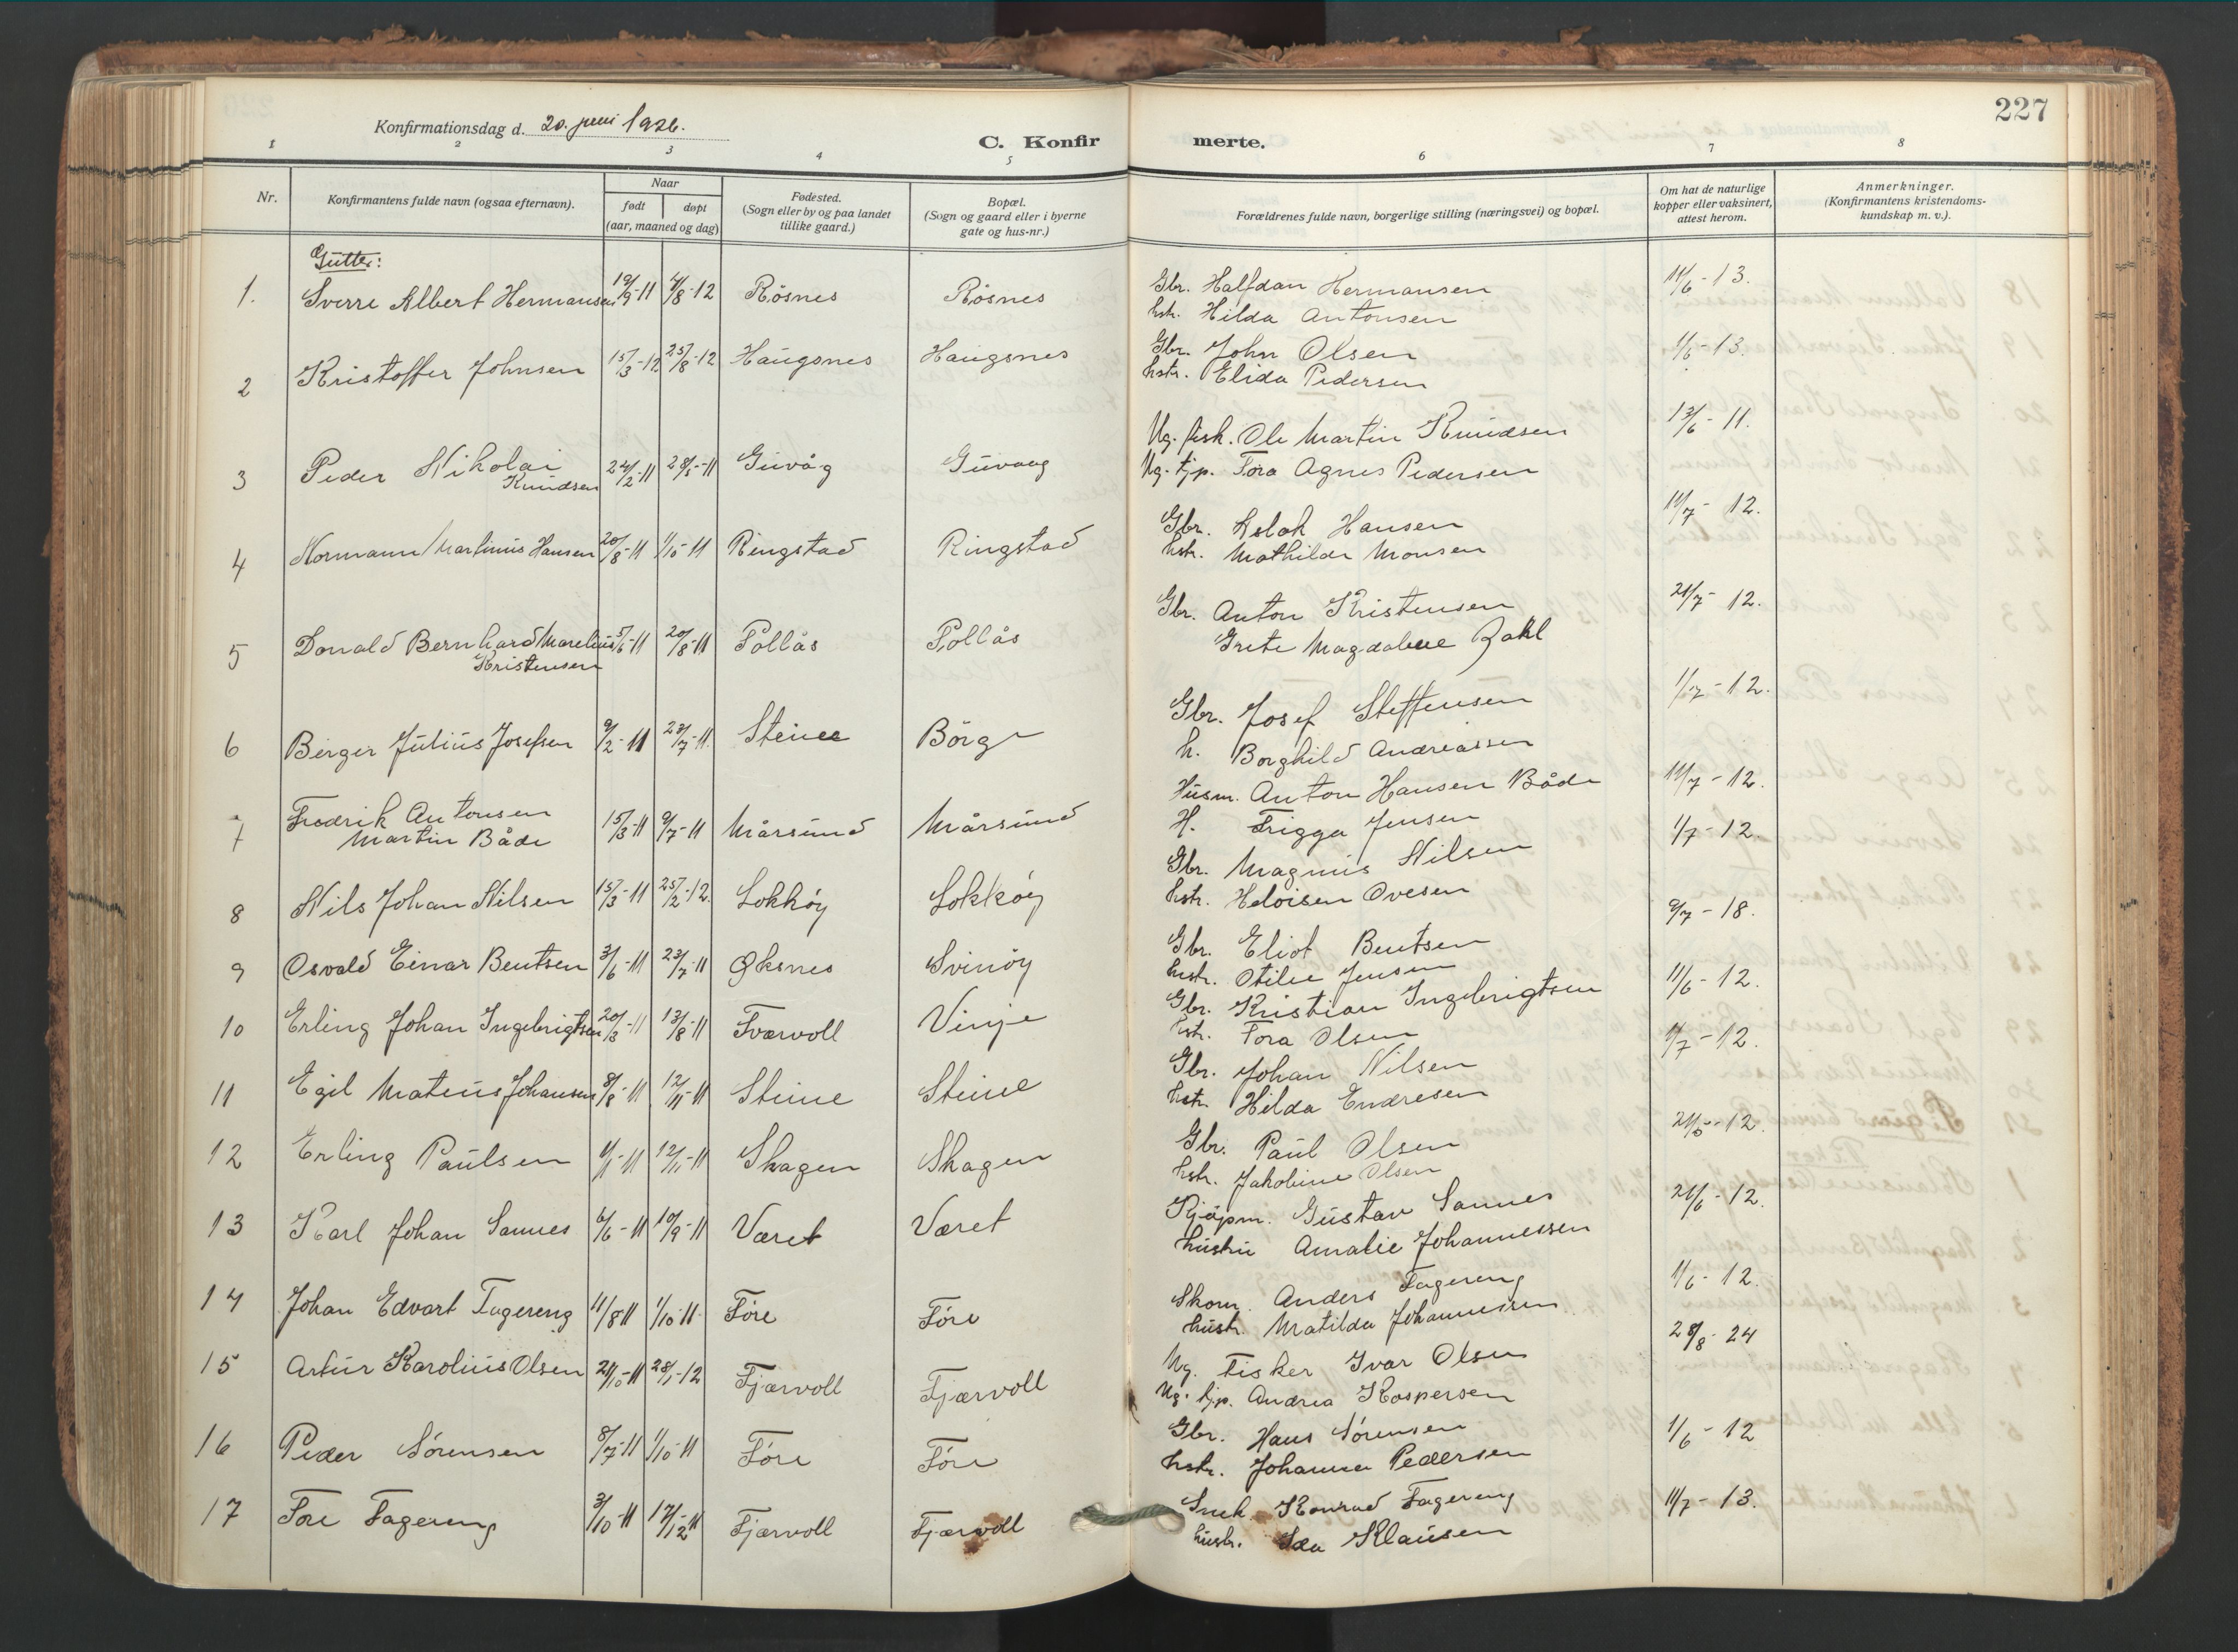 227
Konfirmationsdag d. 20. juni 1926.
C. Konfirmerte.
1 2 3 4 5 6 7 8
Nr.
Konfirmantens fulde navn (ogsaa efternavn).
Naar
født døpt
(aar, maaned og dag)
Fødested.
(Sogn eller by og paa landet
tillike gaard.)
Bopæl.
(Sogn og gaard eller i byerne
gate og hus-nr.)
Forældrenes fulde navn, borgerlige stilling (næringsvei) og bopæl.
Om hat de naturlige
kopper eller vaksinert,
attest herom.
Anmerkninger.
(Konfirmantens kristendoms-
kundskap m. v.).
Gutter:
1. Sverre Albert Hermansen 19/9-11 4/8-12 Rösnes Rösnes Gbr. Halfdan Hermansen 11/6-13.
hstr. Hilda Antonsen
2 Kristoffer Johnsen 15/3-12 25/8-12 Haugsnes Haugsnes Gbr. John Olsen 1/6-13.
hstr. Elida Pedersen
3 Peder Nikolai 22/2-11 28/5-11 Guvåg Guvaag Ug. fisk. Ole Martin Knudsen 13/6-11.
Knudsen Ug. tjp. Tora Agnes Pedersen
4 Normann Martinius Hansen 20/8-11 1/10-11 Ringstad Ringstad Gbr. Aslak Hansen 14/7-12.
hstr. Mathilde Monsen
5 Donald Bernhard Marelius 5/6-11 20/8-11 Pollås Pollås Gbr. Anton Kristensen 21/7-12.
Kristensen Grete Magdalene Zahl
6 Birger Julius Josefsen 9/2-11 23/7-11. Steine Börge Gbr. Josef Steffensen 1/7-12.
h. Borghild Andreassen
7 Fredrik Antonsen 15/3-11 9/7-11 Mårsund Mårsund Husm. Anton Hansen Både 14/7-12.
Martin Både H. Frigga Jensen
8 Nils Johan Nilsen 15/3-11 25/2-12. Lokköy Lokköy Gbr. Magnus Nilsen 1/7-12.
hstr. Heloisen Ovesen
9 Osvald Einar Bentsen 3/6-11 23/7-11 Øksnes Svinöy Gbr. Eliot Bentsen 9/7-18.
hustr. Otilie Jensen
10 Erling Johan Ingebrigtsen 20/3-11 13/8-11 Tværvoll Vinje Gbr. Kristian Ingebrigtsen 11/6-12.
hstr. Tora Olsen
11 Egil Mateus Johansen 8/8-11 12/11-11 Steine Steine Gbr. Johan Nilsen 9/7-12.
hstr. Hilda Endresen
12 Erling Paulsen 4/1-11 12/11-11 Skagen Skagen Gbr. Paul Olsen 21/5-12.
hstr. Jakobine Olsen
13 Karl Johan Sannes 6/6-11 10/9-11 Været Været Kjöpm. Gustav Sannes 21/6-12.
hustru Amalie Johannessen
14 Johan Edvart Fagereng 11/8 11 1/10 11. Före Före Skom. Anders Fagereng 1/6-12.
hustr. Matilda Johannessen
15 Artur Karolius Olsen 21/10-11 28/1-12 Fjærvoll Fjærvoll Ug. Fisker Ivar Olsen 28/8-24
Ug. tjp. Andrea Kaspersen
16 Peder Sörensen 8/7-11 1/10-11 Före Före Gbr. Hans Sörensen 1/6-12
hstr. Johanna Pedersen
17 Tore Fagereng 3/10-11 17/12-11 Fjærvoll Fjærvoll Snek. Konrad Fagereng 11/7-13.
hustr. Ida Klausen